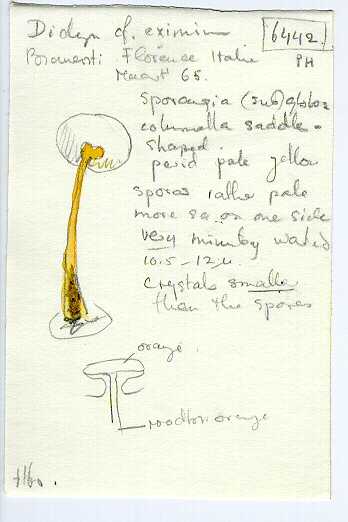 Didym cf. eximium
6442
Florence Italie
PH
65.
Sporangia (sub)globose
columella saddle-
shaped.
perid pale yellow
spores rathe pale
more sa on one side
very minutely warted
10.5-12 µ.
crystals smaller
than the spores
orange.
orange